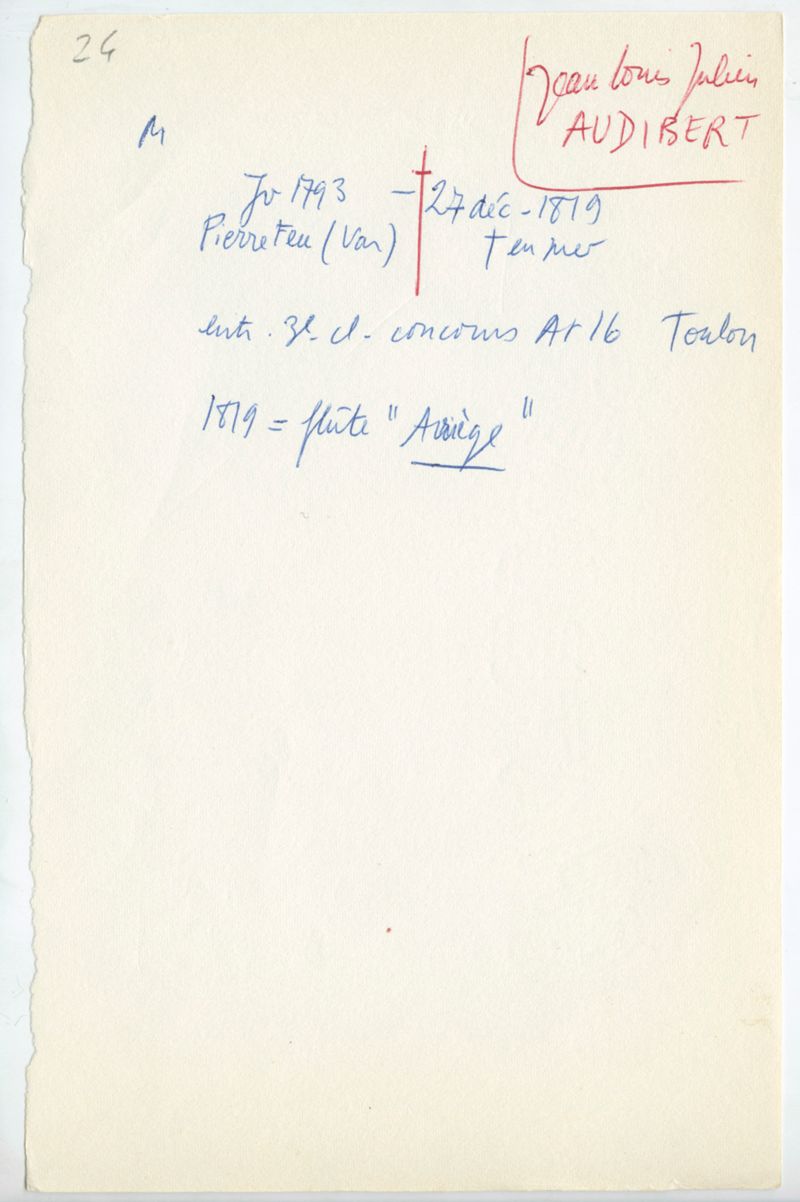 24
Jean Louis Julien
AUDIBERT
M
Jv 1793 - 27 déc - 1819
Pierrefeu (Var) † en mer
entr. 3e cl. concours At 16 Toulon
1819 = flûte "Ariège"